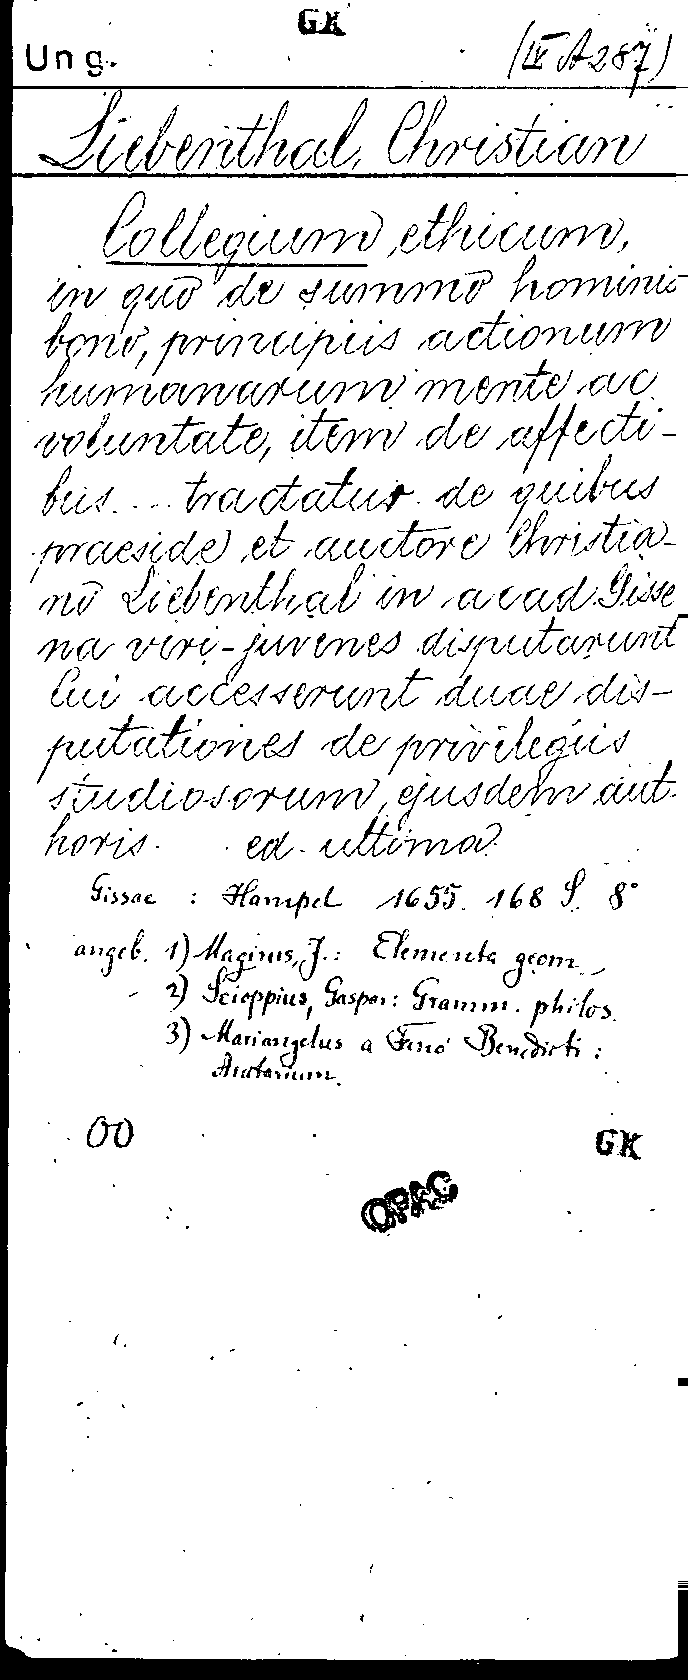 GK
Ung. (IX A 287)
Liebenthal, Christian
Collegium ethicum,
in quo de summo hominis
bono, principiis actionum
humanarum mente ac
voluntate, item de affecti-
bus.... tractatur de quibus
praeside et auctore Christia-
no Liebenthal in acad Gisse
na viri-juvenes disputarunt
Cui accesserunt duae dis-
putationes de privilegiis
studiosorum, ejusdem aut-
horis. ed. ultima.
Gissae : Hampel 1655. 168 S. 8°
angeb. 1) Magirus, J.: Elementa geom.
2) Scioppius, Gaspar: Gramm. philos.
3) Mariangelus a Fano Benedicti :
Auctarium.
OO GK
OPAC